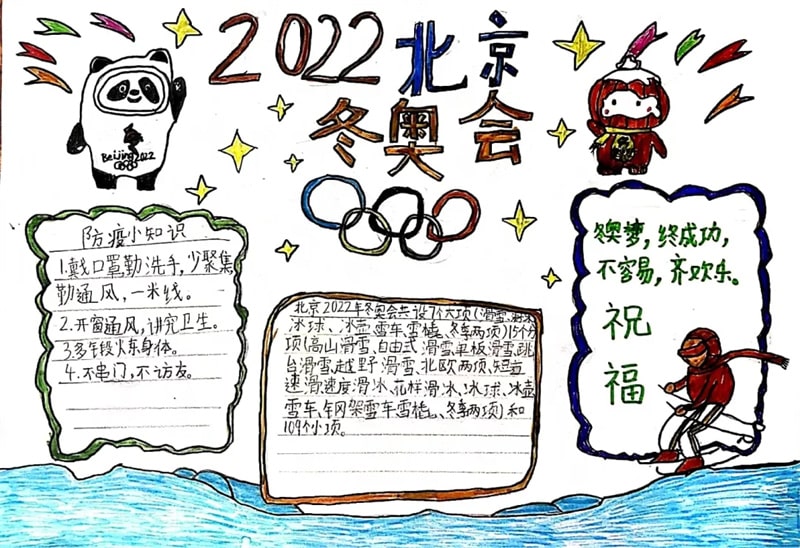 2022北京
冬奥会
Beijing2022
防疫小知识
1.戴口罩勤洗手,少聚集
勤通风,一米线。
2.开窗通风,讲究卫生。
3.多年段火东身体。
4.不串门,不访友。
北京2022年冬奥会共设7个大项(滑雪、滑冰
冰球、冰壶、雪车、雪橇、冬季两项)15个分
项(高山滑雪、自由式滑雪、单板滑雪、跳
台滑雪、越野滑雪、北欧两项、短道
速滑、速度滑冰、花样滑冰、冰球、冰壶
雪车、钢架雪车、雪橇、冬季两项)和
109个小项。
冬奥梦,终成功,
不容易,齐欢乐。
祝
福